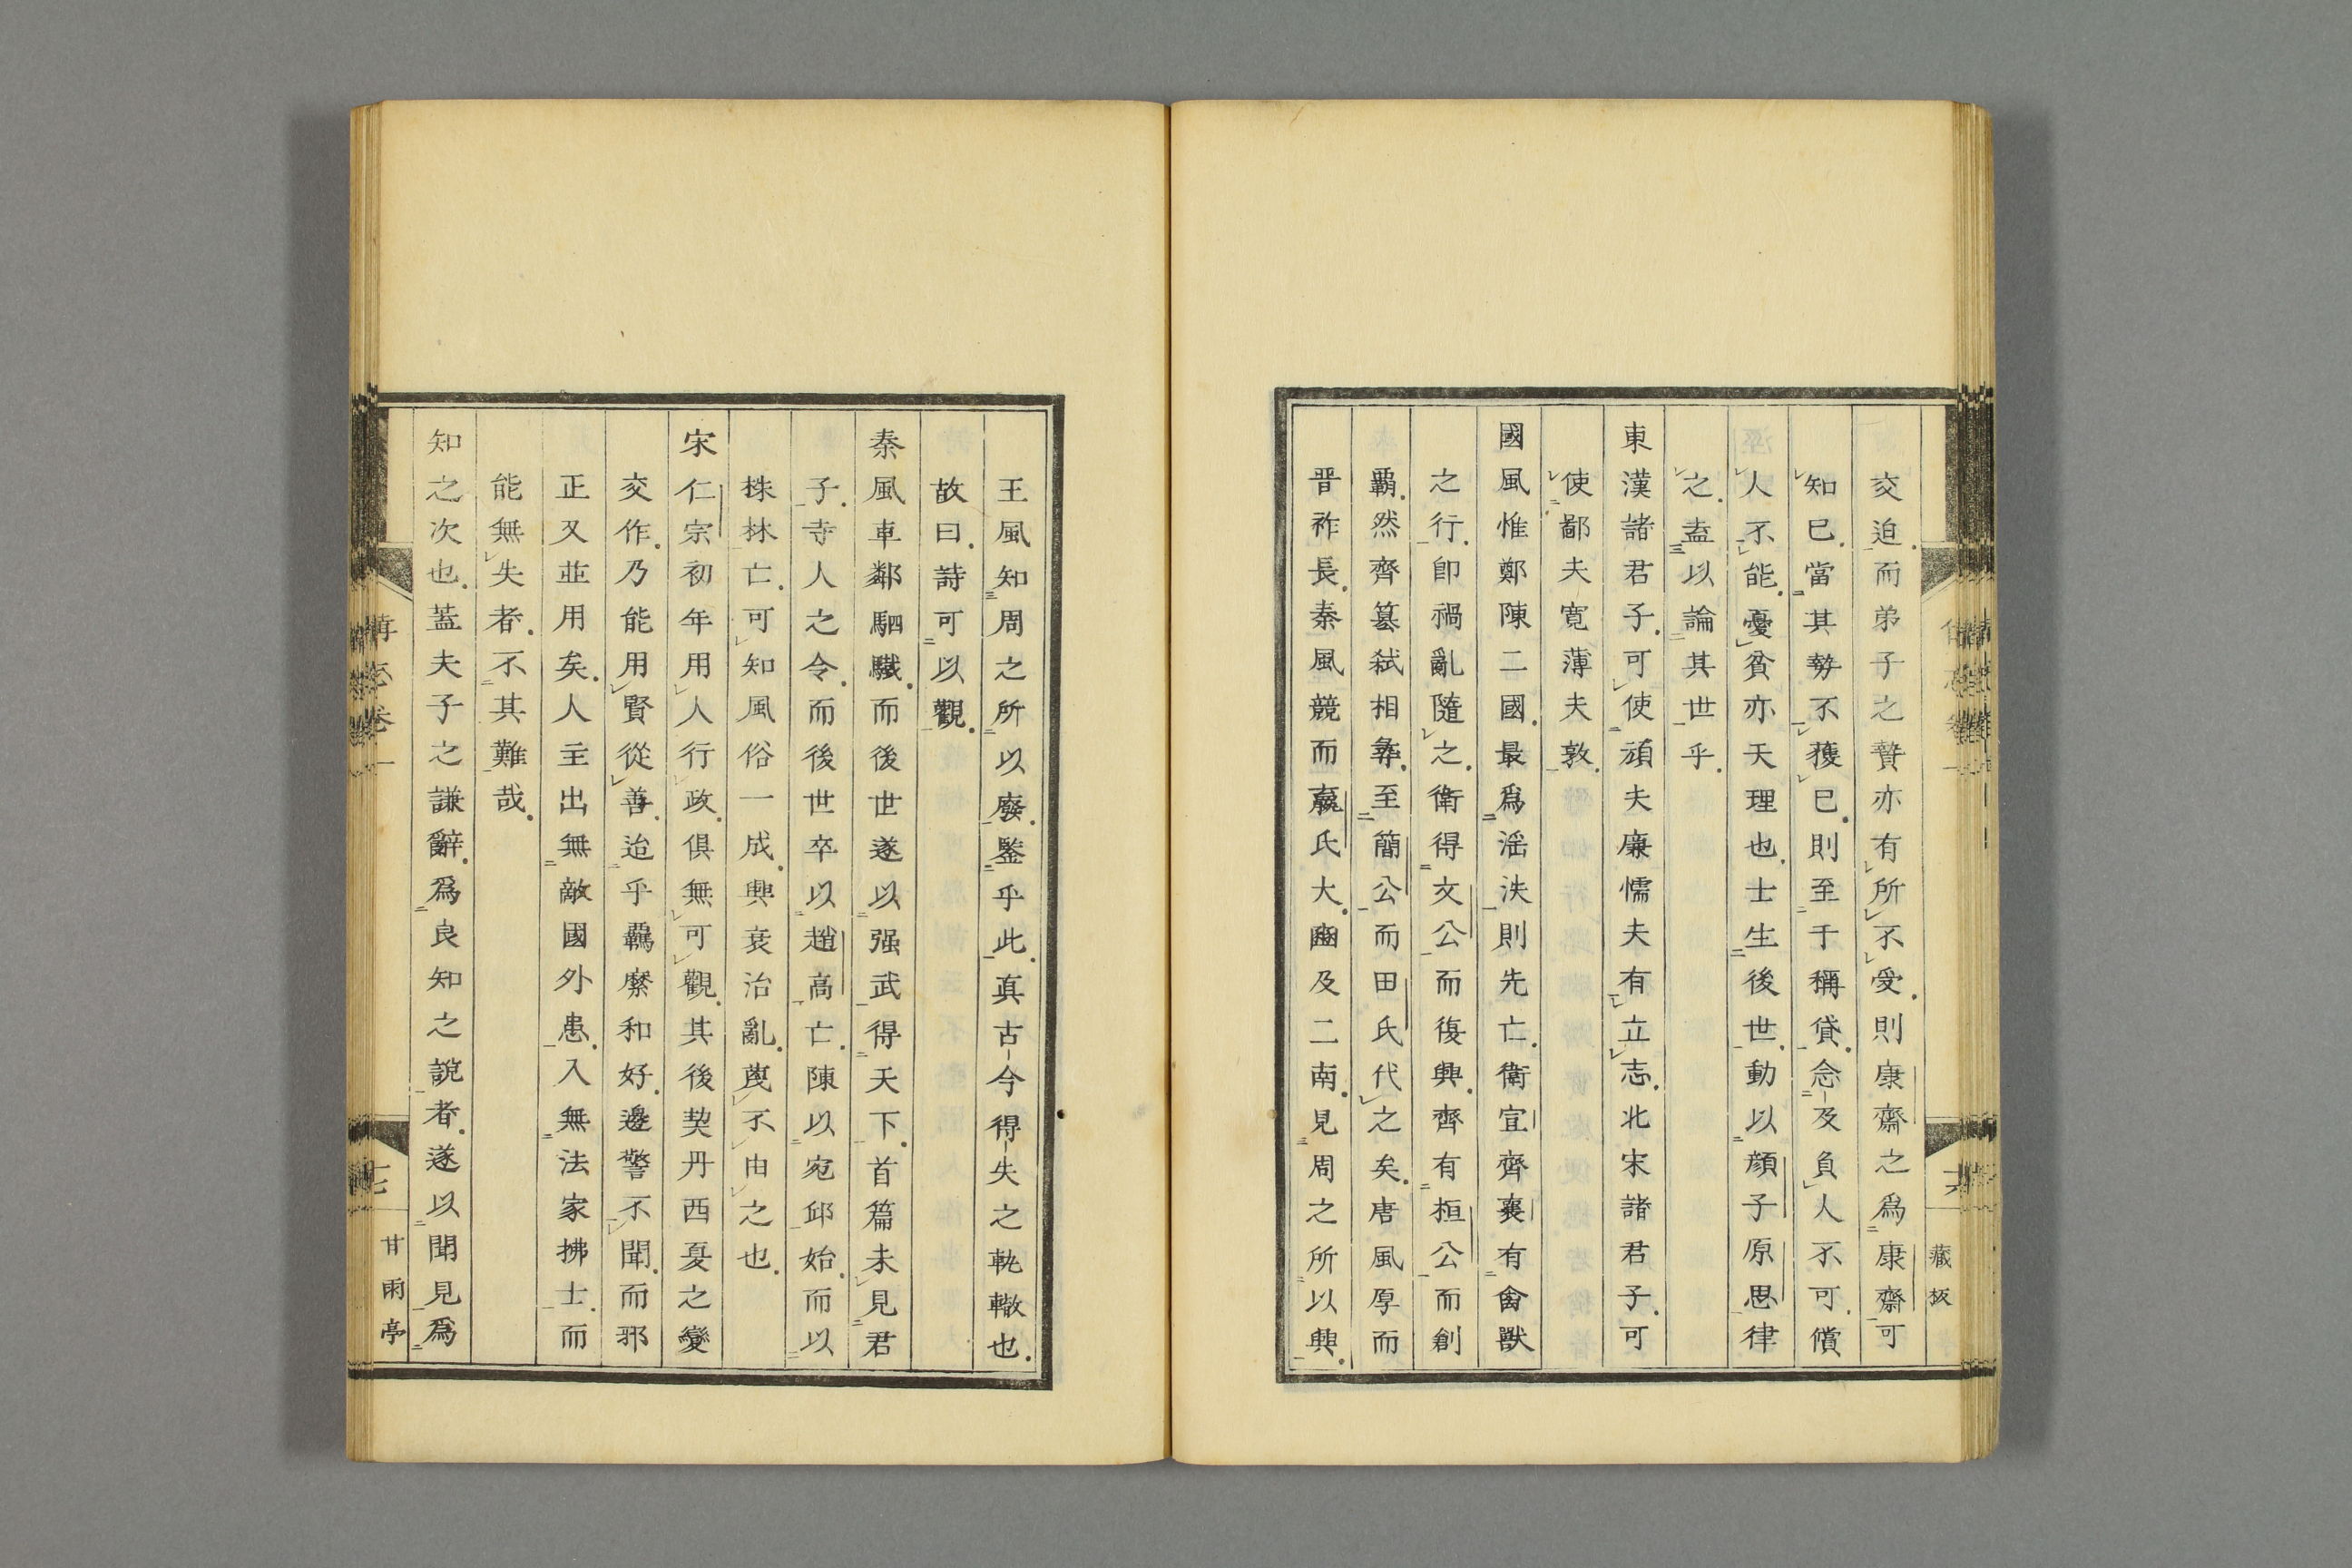 交迫而弟子之贄亦有所不受則康齋之爲康齋可
知已當其勢不獲已則至于稱貸念及負人不可償
人不能憂貧亦天理也士生後世動以顔子原思律
之盍以論其世乎
東漢諸君子可使頑夫廉懦夫有立志北宋諸君子可
使鄙夫寛薄夫敦
國風惟鄭陳二國最爲滛泆則先亡衛宣齊襄有禽獸
之行卽禍亂隨之衛得文公而復興齊有桓公而創
覇然齊簒弑相尋至簡公而田氏代之矣唐風厚而
晋祚長秦風競而嬴氏大豳及二南見周之所以興
藏板
王風知周之所以廢鑒乎此真古今得失之軌轍也
故曰詩可以觀
秦風車鄰駟驖而後世遂以强武得天下首篇未見君
子寺人之令而後世卒以趙高亡陳以宛邱始而以
株林亡可知風俗一成興衰治亂蔑不由之也
宋仁宗初年用人行政俱無可觀其後契丹西夏之變
交作乃能用賢從善迨乎羈縻和好邊警不聞而邪
正又並用矣人主出無敵國外患入無法家拂士而
能無失者不其難哉
知之次也蓋夫子之謙辭爲良知之說者遂以聞見爲
七
甘雨亭